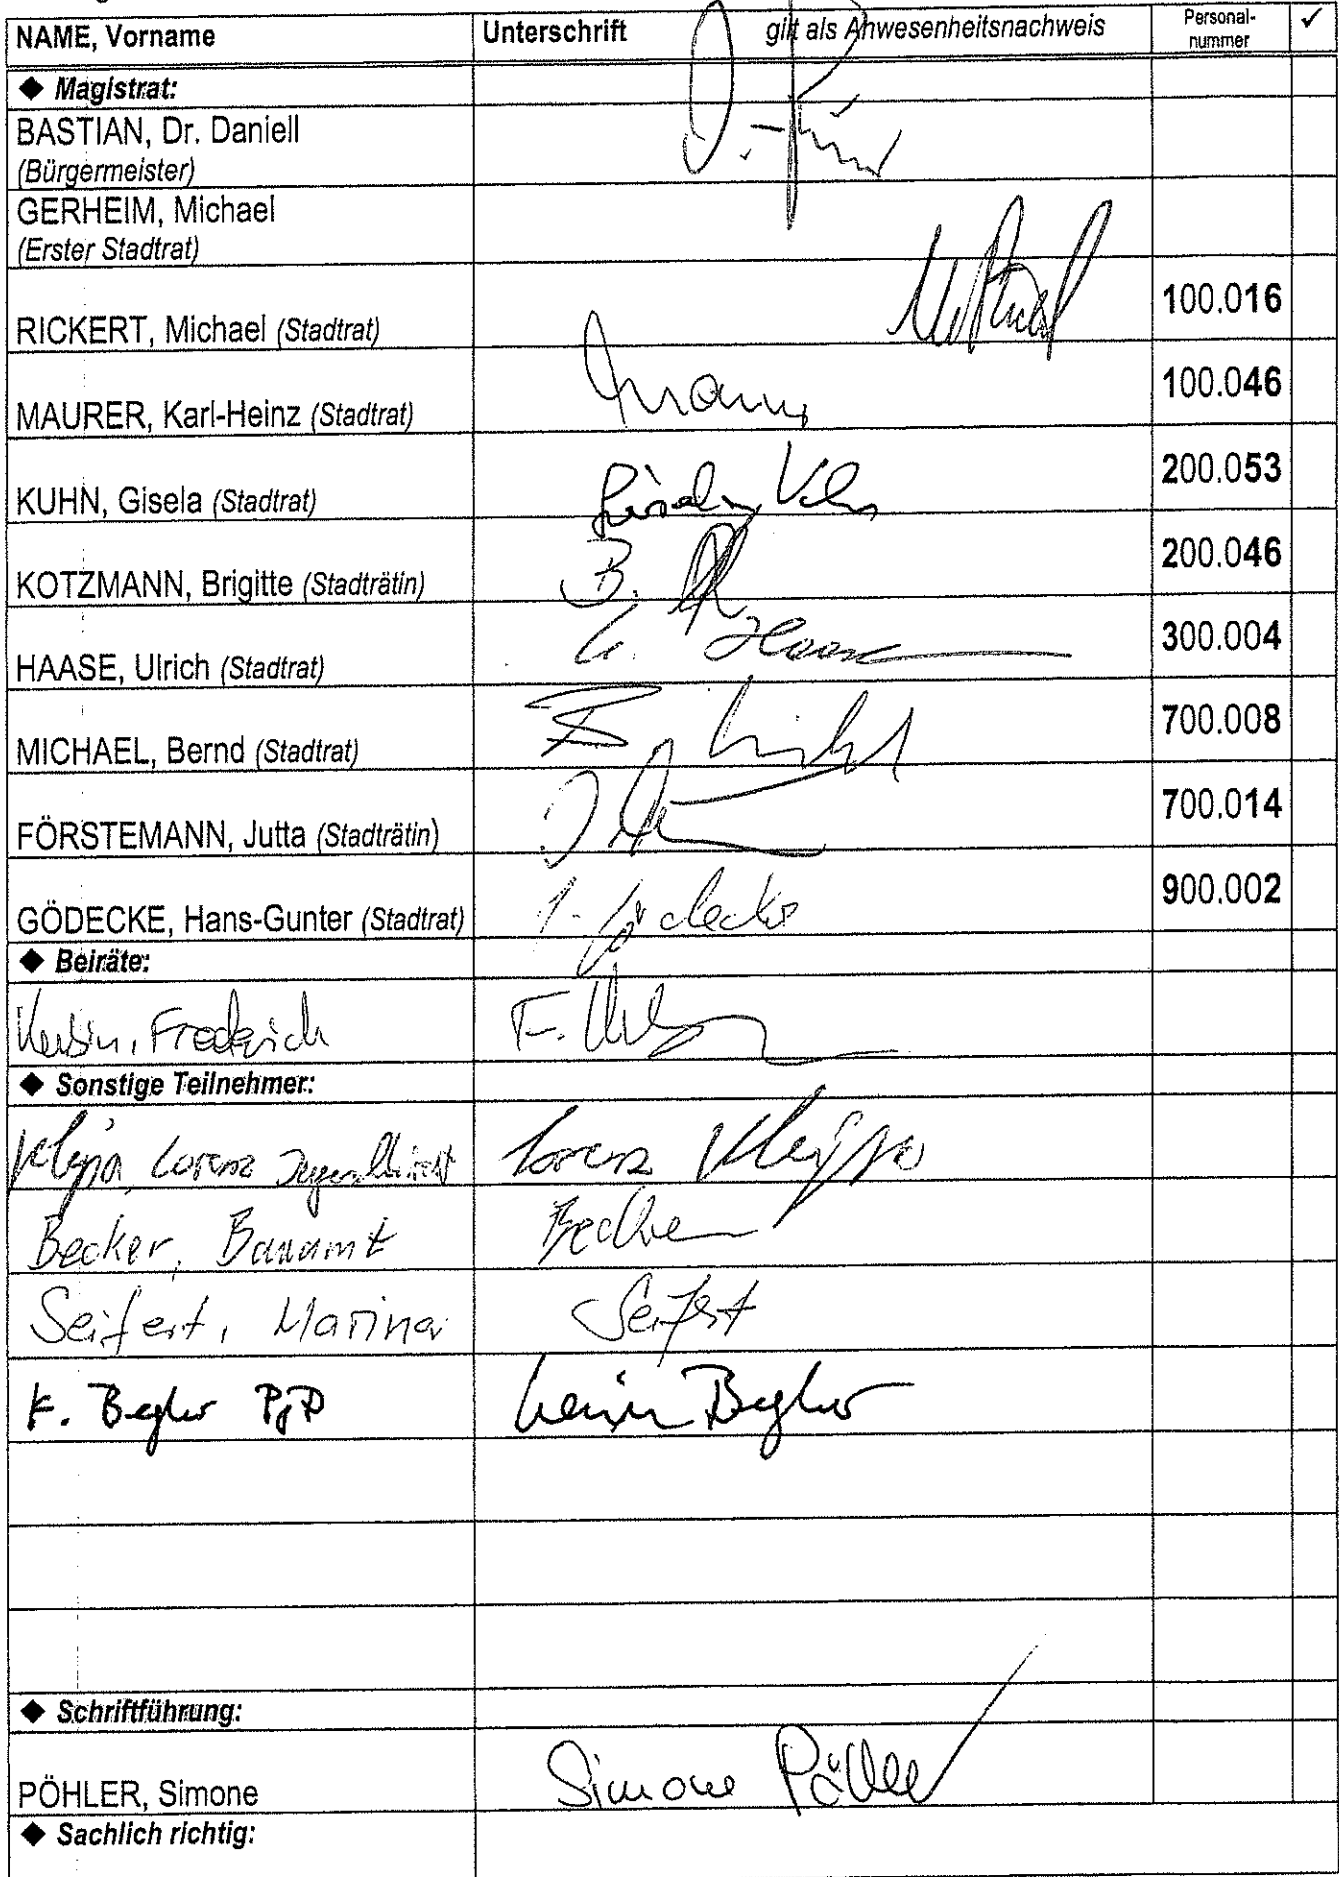 NAME, Vorname Unterschrift gilt als Anwesenheitsnachweis Personal-nummer ✓
◆ Magistrat:
BASTIAN, Dr. Daniell
(Bürgermeister)
GERHEIM, Michael
(Erster Stadtrat)
RICKERT, Michael (Stadtrat) 100.016
MAURER, Karl-Heinz (Stadtrat) 100.046
KUHN, Gisela (Stadtrat) 200.053
KOTZMANN, Brigitte (Stadträtin) B. 200.046
HAASE, Ulrich (Stadtrat) U. Haase 300.004
MICHAEL, Bernd (Stadtrat) 700.008
FÖRSTEMANN, Jutta (Stadträtin) 700.014
GÖDECKE, Hans-Gunter (Stadtrat) Gödecke 900.002
◆ Beiräte:
Frederich F.
◆ Sonstige Teilnehmer:
Lorenz Lorenz
Becker, Bauamt Becker
Seifert, Marina Seifert
K. Begler Begler
◆ Schriftführung:
PÖHLER, Simone Simone Pöhler
◆ Sachlich richtig: